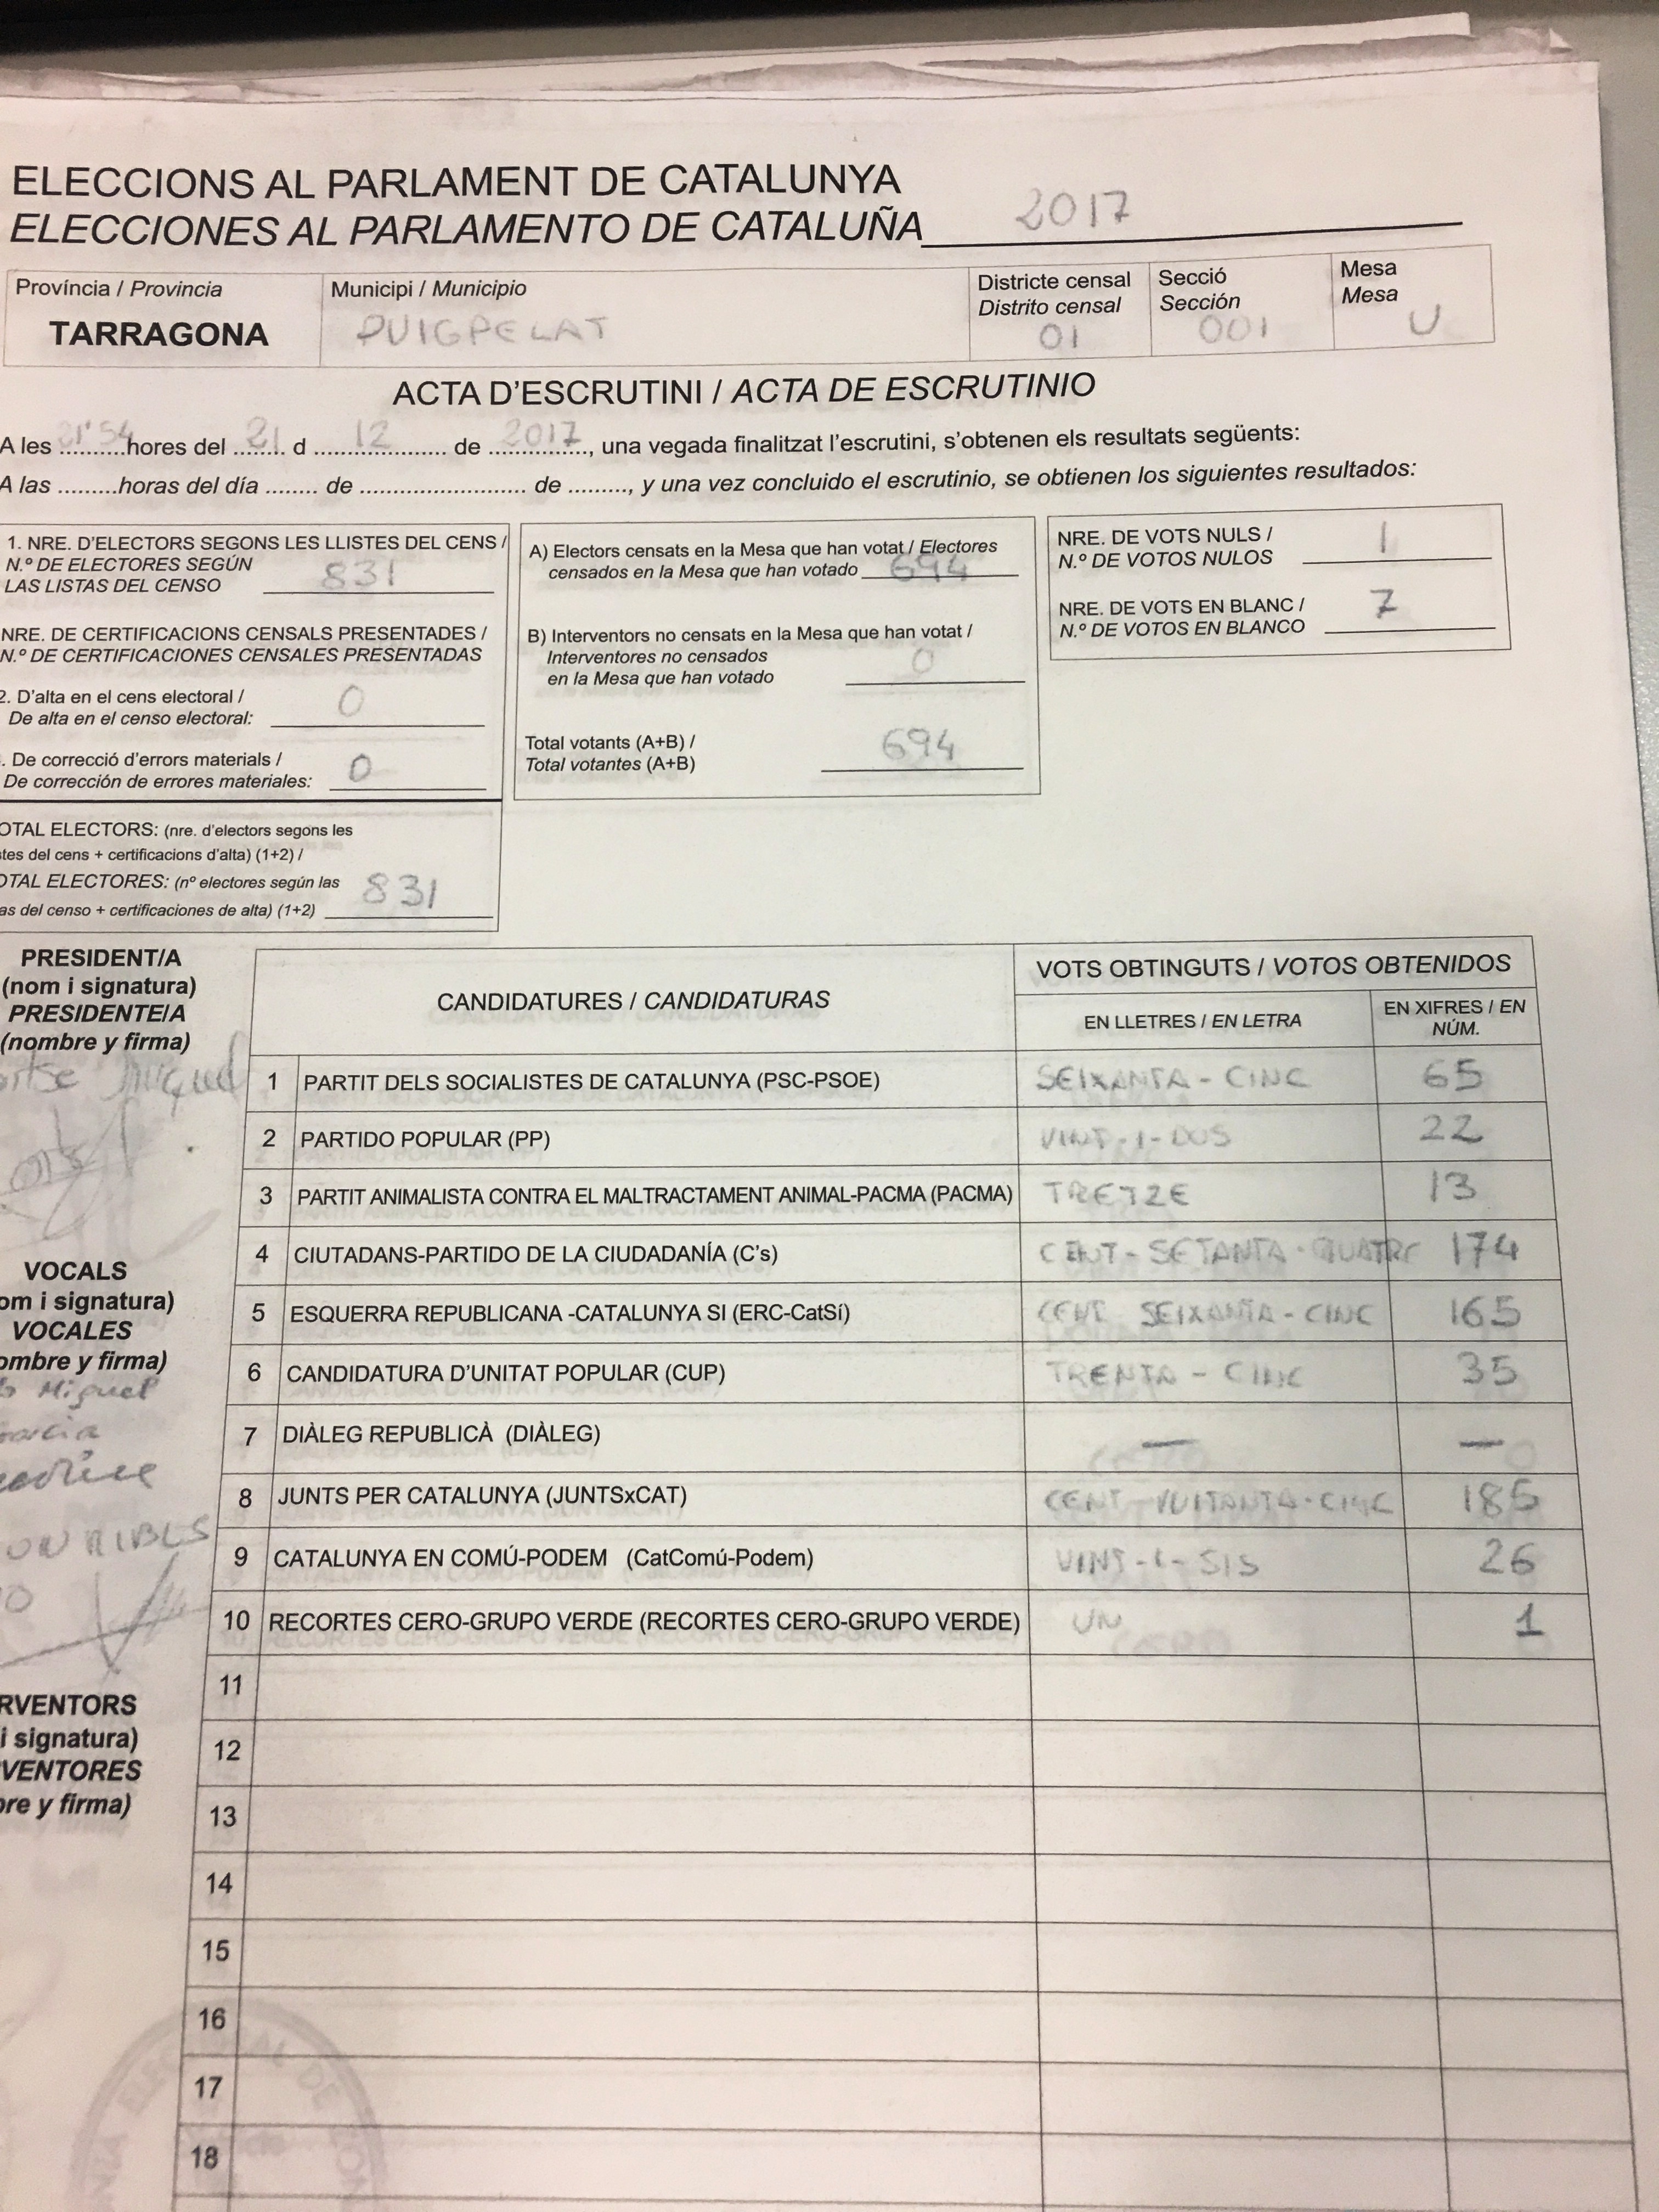 ELECCIONS AL PARLAMENT DE CATALUNYA
ELECCIONES AL PARLAMENTO DE CATALUÑA 2017
Província / Provincia
TARRAGONA
Municipi / Municipio
PUIGPELAT
Districte censal
Distrito censal
01
Secció
Sección
001
Mesa
Mesa
U
ACTA D'ESCRUTINI / ACTA DE ESCRUTINIO
A les 21'54 hores del 21 d 12 de 2017, una vegada finalitzat l'escrutini, s'obtenen els resultats següents:
A las .........horas del día ........ de ........................ de ........., y una vez concluido el escrutinio, se obtienen los siguientes resultados:
1. NRE. D'ELECTORS SEGONS LES LLISTES DEL CENS /
N.º DE ELECTORES SEGÚN
LAS LISTAS DEL CENSO 831
NRE. DE CERTIFICACIONS CENSALS PRESENTADES /
N.º DE CERTIFICACIONES CENSALES PRESENTADAS
2. D'alta en el cens electoral /
De alta en el censo electoral: 0
. De correcció d'errors materials /
De corrección de errores materiales: 0
OTAL ELECTORS: (nre. d'electors segons les
tes del cens + certificacions d'alta) (1+2) /
OTAL ELECTORES: (nº electores según las
as del censo + certificaciones de alta) (1+2) 831
A) Electors censats en la Mesa que han votat / Electores
censados en la Mesa que han votado 694
B) Interventors no censats en la Mesa que han votat /
Interventores no censados
en la Mesa que han votado 0
Total votants (A+B) /
Total votantes (A+B) 694
NRE. DE VOTS NULS /
N.º DE VOTOS NULOS 1
NRE. DE VOTS EN BLANC /
N.º DE VOTOS EN BLANCO 7
PRESIDENT/A
(nom i signatura)
PRESIDENTE/A
(nombre y firma)
VOCALS
om i signatura)
VOCALES
ombre y firma)
Miguel
RVENTORS
i signatura)
VENTORES
bre y firma)
CANDIDATURES / CANDIDATURAS
VOTS OBTINGUTS / VOTOS OBTENIDOS
EN LLETRES / EN LETRA
EN XIFRES / EN
NÚM.
1 PARTIT DELS SOCIALISTES DE CATALUNYA (PSC-PSOE) SEIXANTA - CINC 65
2 PARTIDO POPULAR (PP) VINT-I-DOS 22
3 PARTIT ANIMALISTA CONTRA EL MALTRACTAMENT ANIMAL-PACMA (PACMA) TRETZE 13
4 CIUTADANS-PARTIDO DE LA CIUDADANÍA (C's) CENT - SETANTA - QUATRE 174
5 ESQUERRA REPUBLICANA -CATALUNYA SI (ERC-CatSí) CENT SEIXANTA - CINC 165
6 CANDIDATURA D'UNITAT POPULAR (CUP) TRENTA - CINC 35
7 DIÀLEG REPUBLICÀ (DIÀLEG) — —
8 JUNTS PER CATALUNYA (JUNTSxCAT) CENT-VUITANTA-CINC 185
9 CATALUNYA EN COMÚ-PODEM (CatComú-Podem) VINT-I-SIS 26
10 RECORTES CERO-GRUPO VERDE (RECORTES CERO-GRUPO VERDE) UN 1
11
12
13
14
15
16
17
18